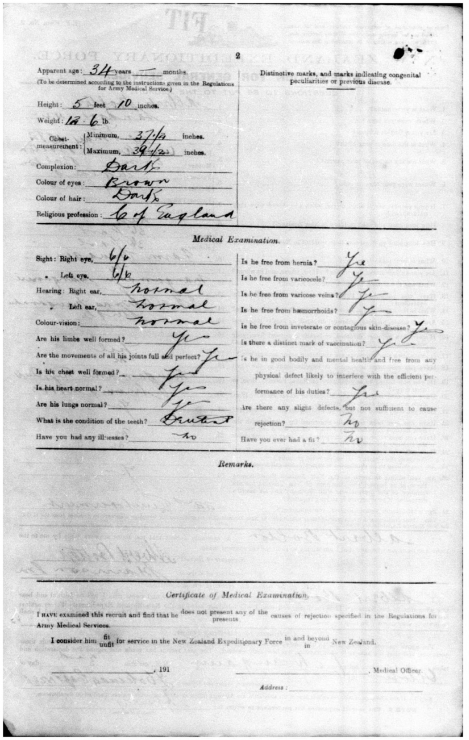 2
Apparent age: 34 years — months.
(To be determined according to the instructions given in the Regulations
for Army Medical Service.)
Height: 5 feet 10 inches.
Weight: 12 6 lb.
Chest-measurement: Minimum, 37 1/2 inches.
Maximum, 39 1/2 inches.
Complexion: Dark
Colour of eyes: Brown
Colour of hair: Dark
Religious profession: C of England
Distinctive marks, and marks indicating congenital
peculiarities or previous disease.
Medical Examination.
Sight: Right eye, 6/6
" Left eye, 6/6
Hearing: Right ear, normal
" Left ear, normal
Colour-vision: normal
Are his limbs well formed? Yes
Are the movements of all his joints full and perfect? Yes
Is his chest well formed? Yes
Is his heart normal? Yes
Are his lungs normal? Yes
What is the condition of the teeth?
Have you had any illnesses? No
Is he free from hernia? Yes
Is he free from varicocele? Yes
Is he free from varicose veins? Yes
Is he free from hæmorrhoids? Yes
Is he free from inveterate or contagious skin-disease? Yes
Is there a distinct mark of vaccination? Yes
Is he in good bodily and mental health and free from any
physical defect likely to interfere with the efficient per-
formance of his duties? Yes
Are there any slight defects, but not sufficient to cause
rejection? No
Have you ever had a fit? No
Remarks.
Certificate of Medical Examination.
I HAVE examined this recruit and find that he does not present any of the / presents causes of rejection specified in the Regulations for
Army Medical Services.
I consider him fit / unfit for service in the New Zealand Expeditionary Force in and beyond / in New Zealand.
, 191 , Medical Officer.
Address: